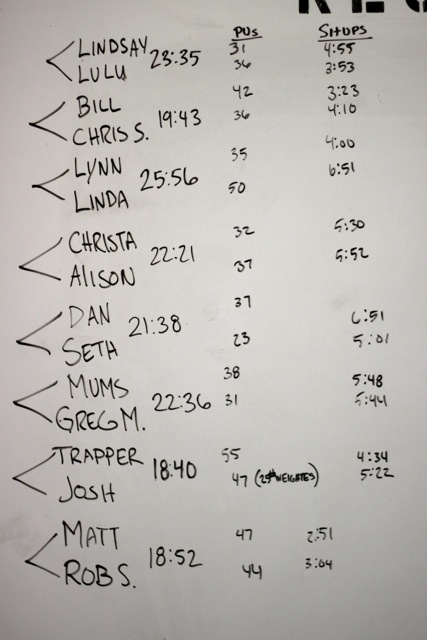 PUs SitUPS
LINDSAY 23:35 31 4:55
LULU 36 3:53
BILL 19:43 42 3:23
CHRIS S. 36 4:10
LYNN 25:56 35 4:00
LINDA 50 6:51
CHRISTA 22:21 32 5:30
ALISON 37 5:52
DAN 21:38 37 6:51
SETH 23 5:01
MUMS 22:36 38 5:48
GREG M. 31 5:44
TRAPPER 18:40 55 4:34
JOSH 47 (25# WEIGHTES) 5:22
MATT 18:52 47 2:51
ROB S. 44 3:04